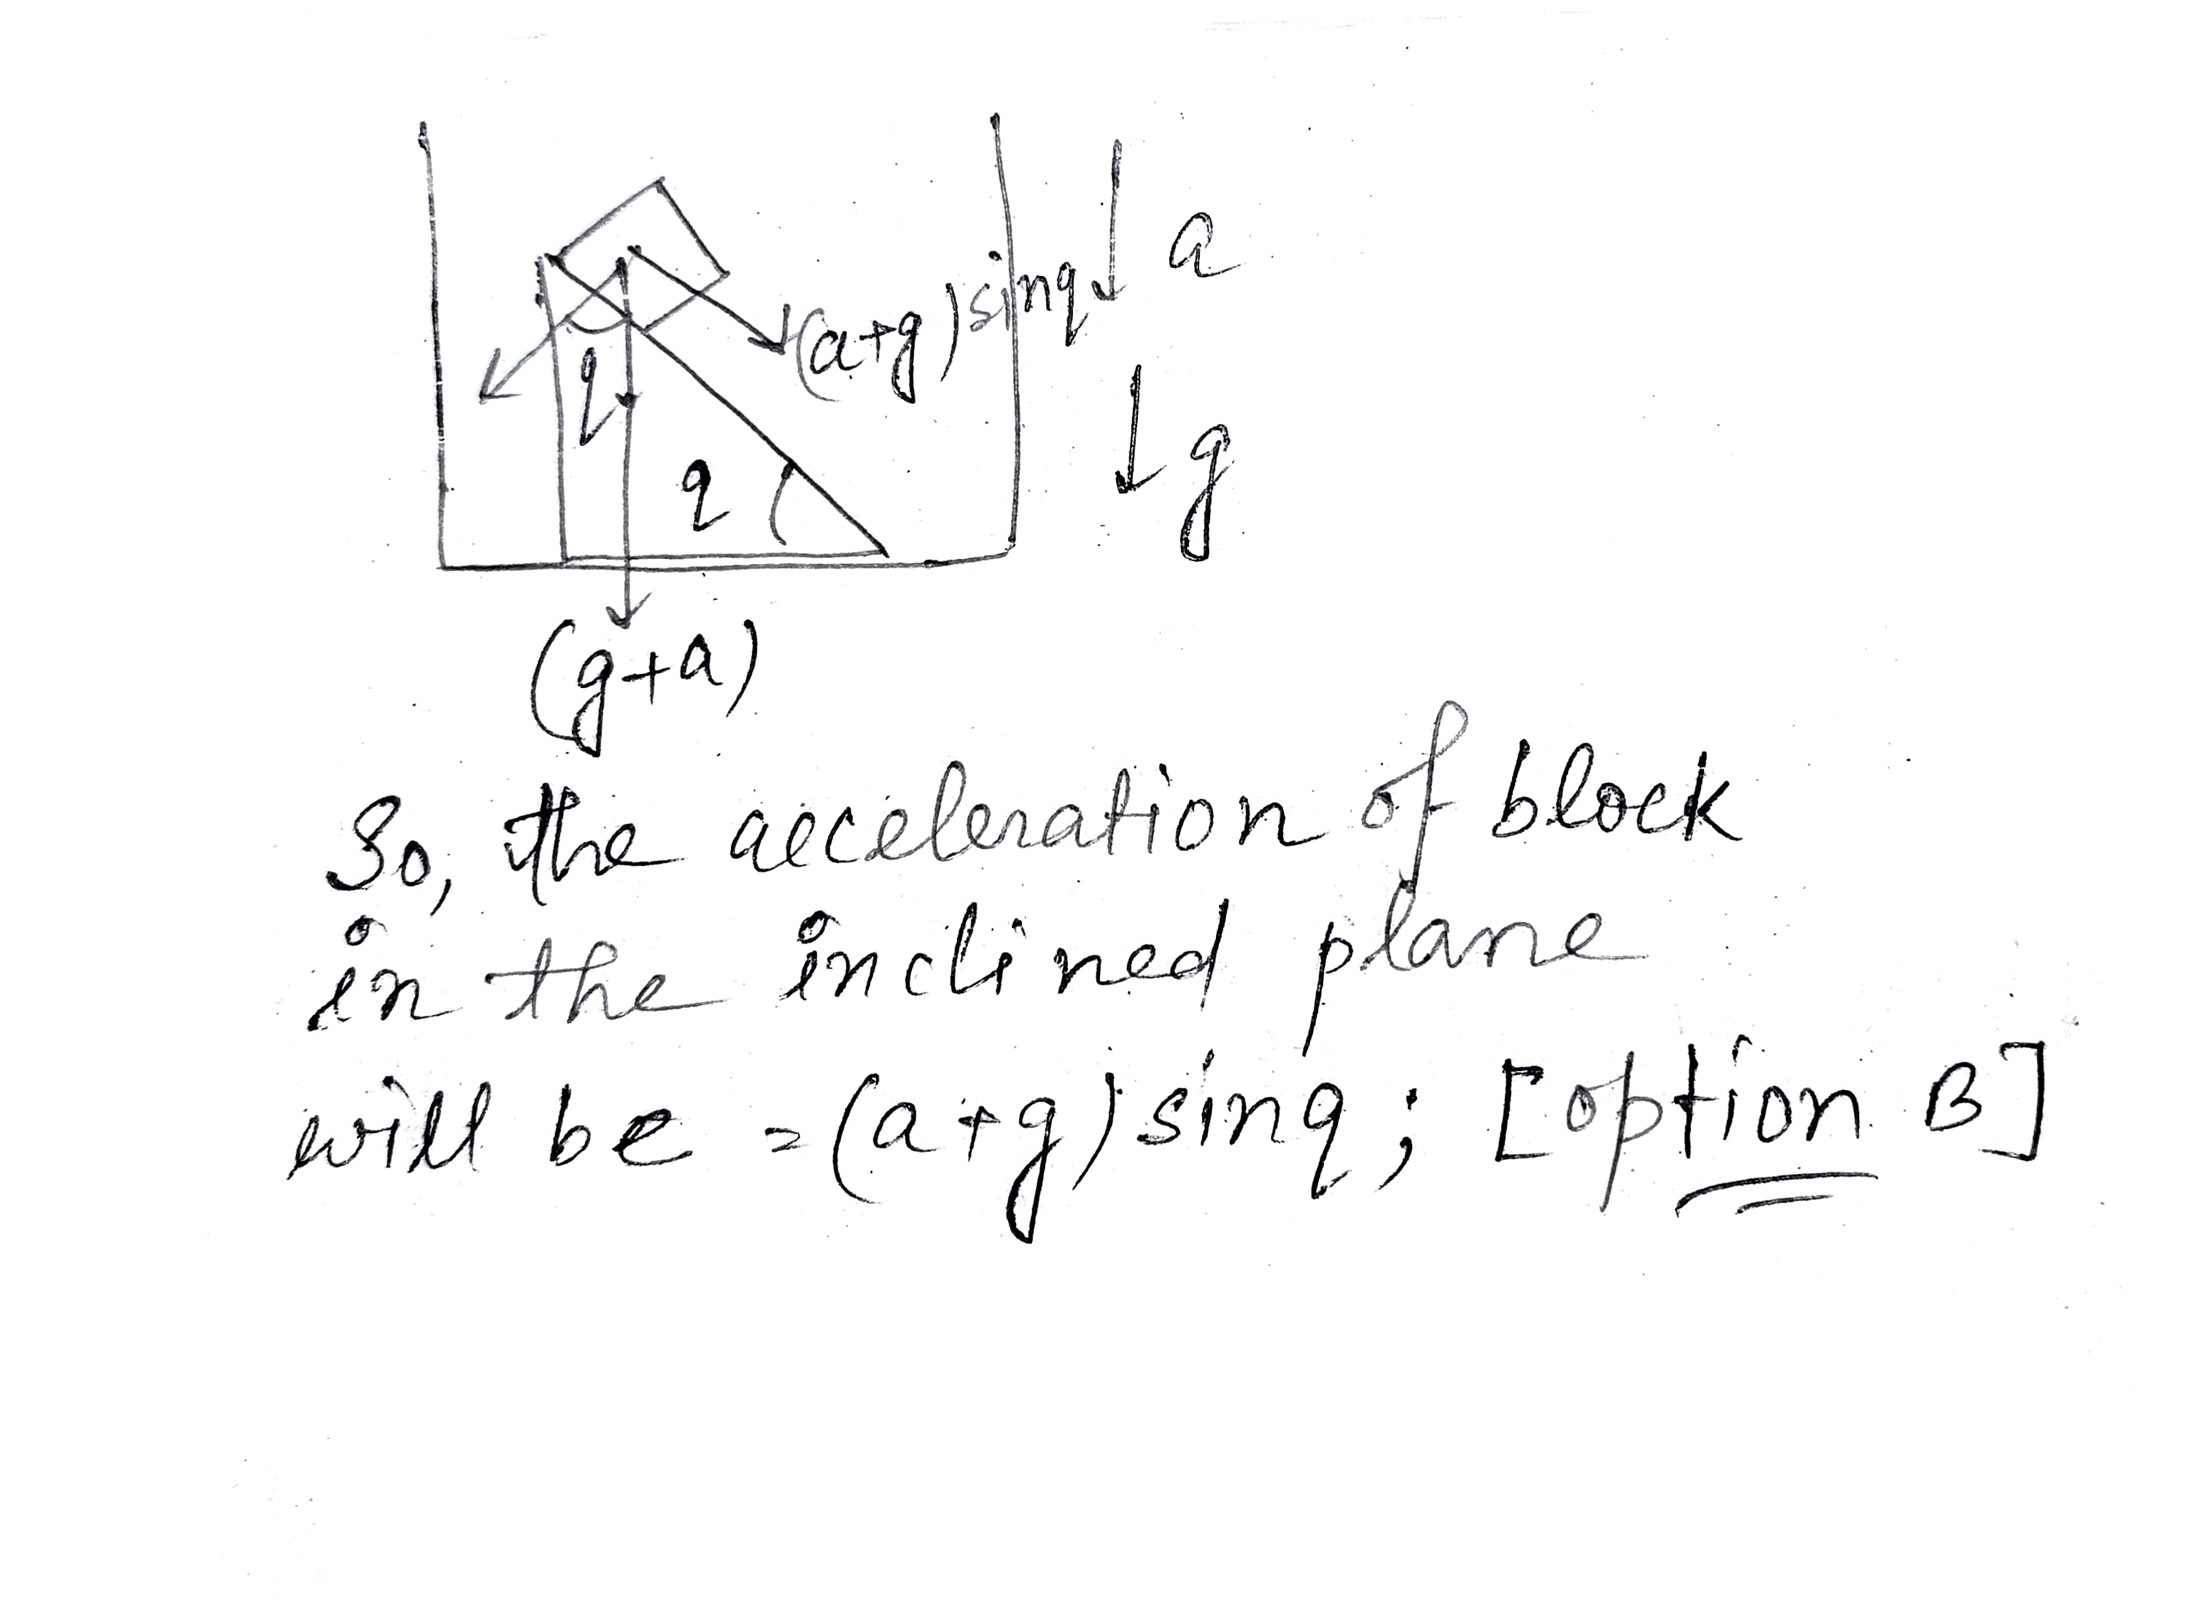 a
(a+g) sinq
g
q
q
(g+a)
So, the acceleration of block
in the inclined plane
will be =(a+g) sinq; [option B]